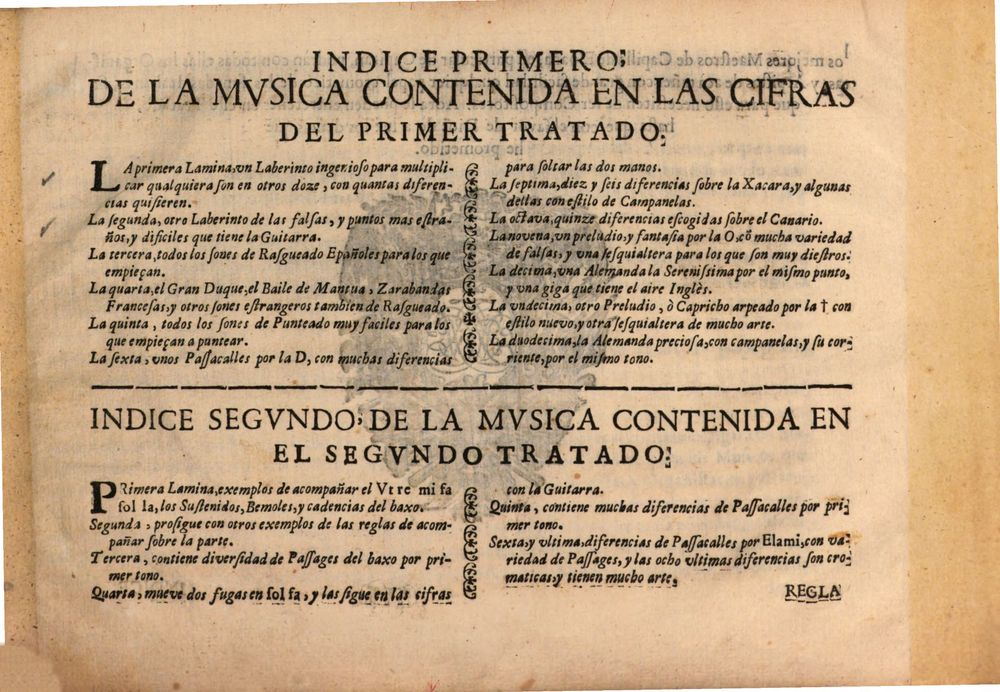 INDICE PRIMERO;
DE LA MVSICA CONTENIDA EN LAS CIFRAS
DEL PRIMER TRATADO.
LA primera Lamina, vn Laberinto ingenioso para multipli-
car qualquiera son en otros doze, con quantas diferen-
cias quisieren.
La segunda, otro Laberinto de las falsas, y puntos mas estra-
ños, y dificiles que tiene la Guitarra.
La tercera, todos los sones de Rasgueado Españoles para los que
empieçan.
La quarta, el Gran Duque, el Baile de Mantua, Zarabandas
Francesas, y otros sones estrangeros tambien de Rasgueado.
La quinta, todos los sones de Punteado muy faciles para los
que empieçan a puntear.
La sexta, vnos Passacalles por la D, con muchas diferencias
para soltar las dos manos.
La septima, diez y seis diferencias sobre la Xacara, y algunas
dellas con estilo de Campanelas.
La octava, quinze diferencias escogidas sobre el Canario.
La novena, vn preludio, y fantasia por la O, cõ mucha variedad
de falsas, y vna sesquialtera para los que son muy diestros.
La decima, vna Alemanda la Serenissima por el mismo punto,
y vna giga que tiene el aire Inglès.
La vndecima, otro Preludio, ò Capricho arpeado por la † con
estilo nuevo, y otra sesquialtera de mucho arte.
La duodecima, la Alemanda preciosa, con campanelas, y su cor-
riente, por el mismo tono.
INDICE SEGVNDO, DE LA MVSICA CONTENIDA EN
EL SEGVNDO TRATADO.
PRimera Lamina, exemplos de acompañar el Vt re mi fa
sol la, los Sustenidos, Bemoles, y cadencias del baxo.
Segunda, prosigue con otros exemplos de las reglas de acom-
pañar sobre la parte.
Tercera, contiene diversidad de Passages del baxo por pri-
mer tono.
Quarta, mueve dos fugas en sol fa, y las sigue en las cifras
con la Guitarra.
Quinta, contiene muchas diferencias de Passacalles por pri-
mer tono.
Sexta, y vltima, diferencias de Passacalles por Elami, con va-
riedad de Passages, y las ocho vltimas diferencias son cro-
maticas, y tienen mucho arte.
REGLA